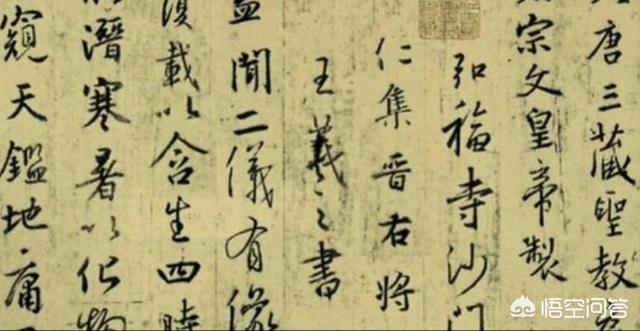 唐三藏聖教
宗文皇帝製
弘福寺沙門
仁集晉右將
王羲之書
蓋聞二儀有像
覆載以含生四時
潛寒暑以化物
窺天鑑地庸
悟空问答